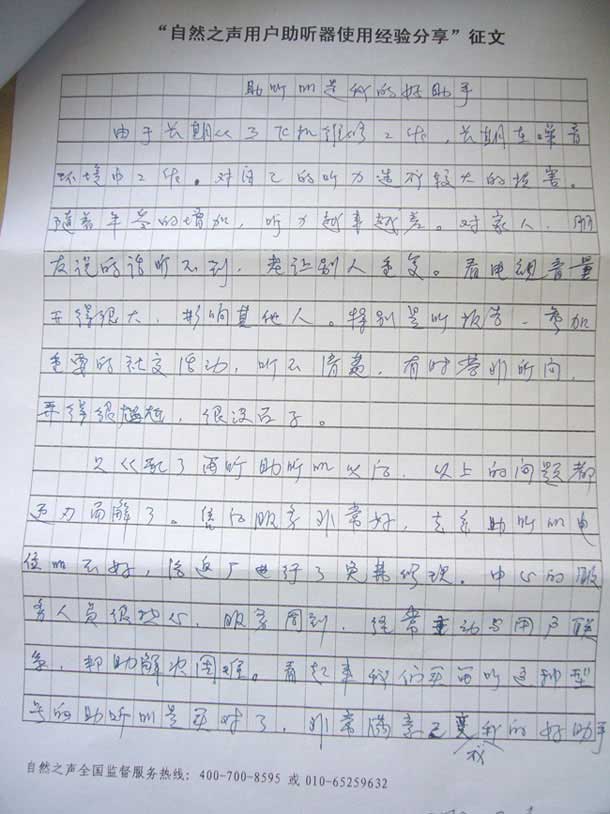 “自然之声用户助听器使用经验分享”征文
助听机是我的好助手
由于长期从事飞机维修工作，长期在噪音
环境中工作。对自己的听力造成较大的损害。
随着年岁的增加，听力越来越差。对家人、朋
友说的话听不到，老让别人重复。看电视音量
开得很大，影响其他人。特别是听报告、参加
重要的社交活动，听不清楚，有时答非所问，
弄得很尴尬，很没面子。
只从配了西听助听机以后，以上的问题都
迎刃而解了。售后服务非常好，去年助听机电
位 不好，给返厂进行了免费修理。中心的服
务人员很热心，服务周到，经常主动与用户联
系，帮助解决困难。看起来我们买西听这种型
号的助听机是买对了，非常满意 我的好助手
成
自然之声全国监督服务热线：400-700-8595 或 010-65259632